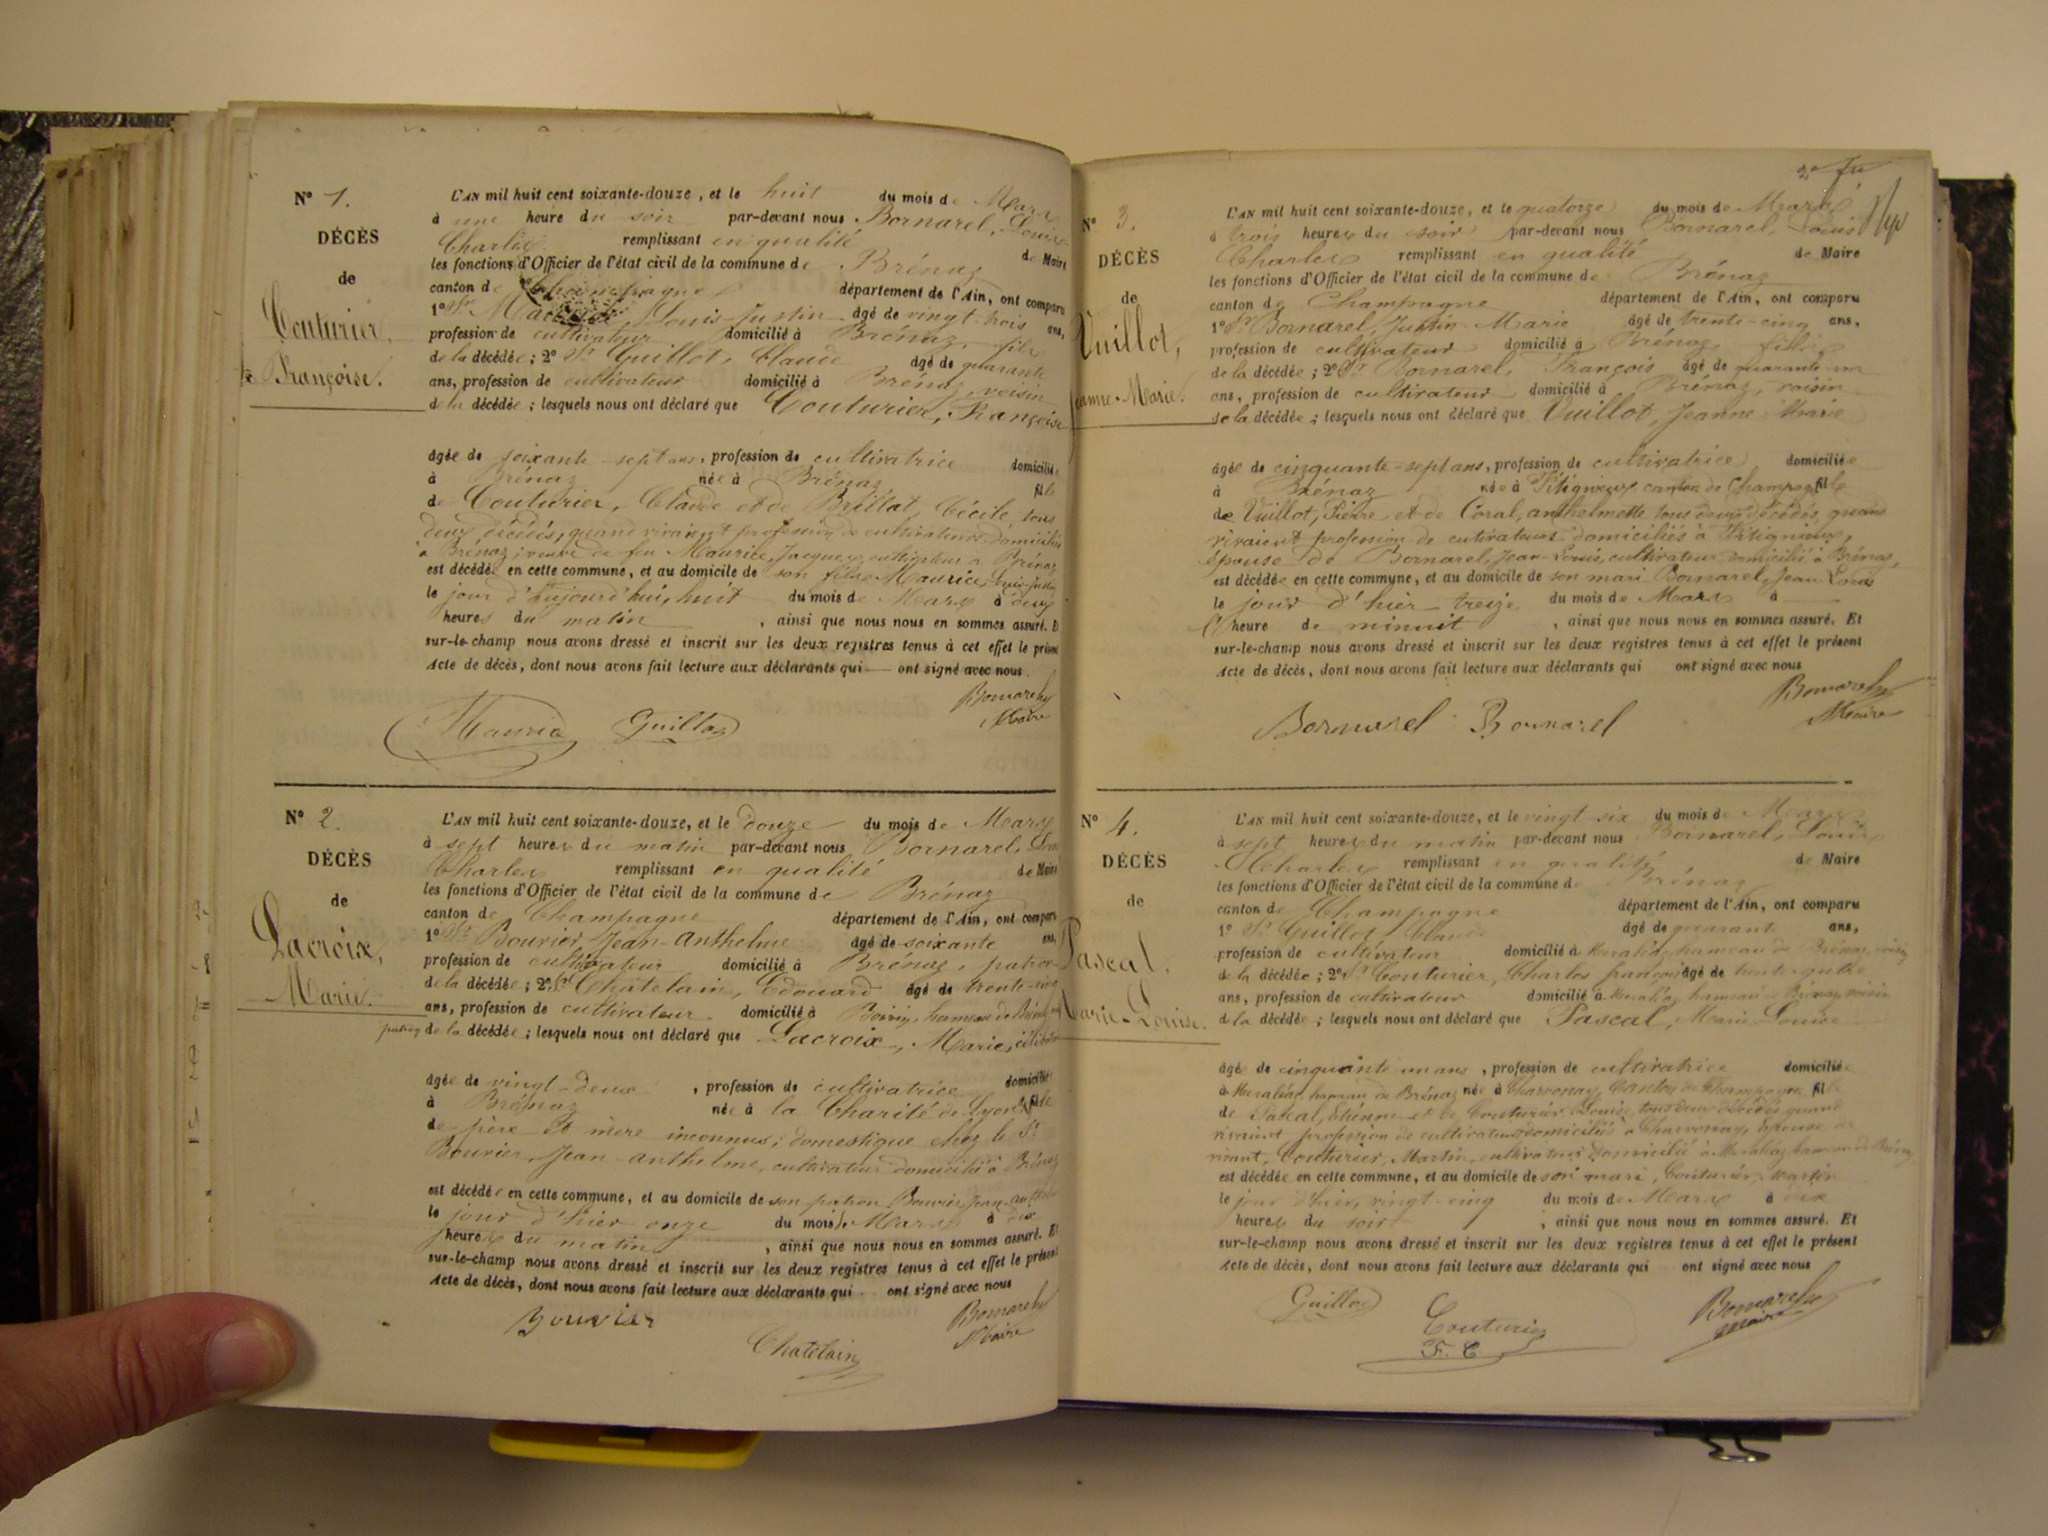 N° 1.
DÉCÈS
de
Couturier,
Françoise.
L'AN mil huit cent soixante-douze, et le huit du mois de Mars
à une heure du soir par-devant nous Bornarel, Louis
Charles remplissant en qualité de Maire
les fonctions d'Officier de l'état civil de la commune de Brénaz
canton de Champagne département de l'Ain, ont comparu
1° Sr Maurice, Louis-Justin âgé de vingt-trois ans,
profession de cultivateur domicilié à Brénaz, fils
de la décédée ; 2° Sr Guillot, Claude âgé de quarante
ans, profession de cultivateur domicilié à Brénaz, voisin
de la décédée ; lesquels nous ont déclaré que Couturier, Françoise
âgée de soixante-sept ans, profession de cultivatrice domiciliée
à Brénaz née à Brénaz fille
de Couturier, Claude et de Brillat, Cécile, tous
deux décédés, quand vivaient profession de cultivateurs domiciliés
à Brénaz, veuve de feu Maurice, Jacques, cultivateur à Brénaz
est décédée en cette commune, et au domicile de son fils Maurice, Louis-Justin
le jour d'aujourd'hui, huit du mois de Mars à deux
heures du matin, ainsi que nous nous en sommes assuré. Et
sur-le-champ nous avons dressé et inscrit sur les deux registres tenus à cet effet le présent
Acte de décès, dont nous avons fait lecture aux déclarants qui ont signé avec nous.
Maurice Guillot Bornarel
Maire
N° 2.
DÉCÈS
de
Lacroix,
Marie.
L'AN mil huit cent soixante-douze, et le douze du mois de Mars
à sept heures du matin par-devant nous Bornarel, Louis
Charles remplissant en qualité de Maire
les fonctions d'Officier de l'état civil de la commune de Brénaz
canton de Champagne département de l'Ain, ont comparu
1° Sr Bouvier, Jean-Anthelme âgé de soixante ans,
profession de cultivateur domicilié à Brénaz, patron
de la décédée ; 2° Sr Chatelain, Edouard âgé de trente-
ans, profession de cultivateur domicilié à hameau de Brénaz
de la décédée ; lesquels nous ont déclaré que Lacroix, Marie, célibataire
âgée de vingt-deux, profession de cultivatrice domiciliée
à Brénaz née à la Charité de Lyon fille
de père et mère inconnus ; domestique chez le Sr
Bouvier, Jean-Anthelme, cultivateur domicilié à Brénaz
est décédée en cette commune, et au domicile de son patron Bouvier Jean-Anthelme
le jour d'hier onze du mois de Mars à dix
heures du matin, ainsi que nous nous en sommes assuré. Et
sur-le-champ nous avons dressé et inscrit sur les deux registres tenus à cet effet le présent
Acte de décès, dont nous avons fait lecture aux déclarants qui ont signé avec nous
Bouvier Chatelain Bornarel
Maire
N° 3.
DÉCÈS
de
Vuillot,
Jeanne-Marie.
L'AN mil huit cent soixante-douze, et le quatorze du mois de Mars
à trois heures du soir par-devant nous Bornarel, Louis
Charles remplissant en qualité de Maire
les fonctions d'Officier de l'état civil de la commune de Brénaz
canton de Champagne département de l'Ain, ont comparu
1° Sr Bornarel, Justin-Marie âgé de trente-cinq ans,
profession de cultivateur domicilié à Brénaz fils
de la décédée ; 2° Sr Bornarel, François âgé de quarante-un
ans, profession de cultivateur domicilié à Brénaz, voisin
de la décédée ; lesquels nous ont déclaré que Vuillot, Jeanne-Marie
âgée de cinquante-sept ans, profession de cultivatrice domiciliée
à Brénaz née à Vitignieux canton de Champagne fille
de Vuillot, Pierre et de Coral, anthelmette tous deux décédés quand
vivaient profession de cultivateurs domiciliés à Vitignieux,
épouse de Bornarel, Jean-Louis, cultivateur domicilié à Brénaz,
est décédée en cette commune, et au domicile de son mari Bornarel, Jean Louis
le jour d'hier treize du mois de Mars à
l'heure de minuit, ainsi que nous nous en sommes assuré. Et
sur-le-champ nous avons dressé et inscrit sur les deux registres tenus à cet effet le présent
Acte de décès, dont nous avons fait lecture aux déclarants qui ont signé avec nous
Bornarel Bornarel Bornarel
Maire
N° 4.
DÉCÈS
de
Pascal,
Marie-Louise.
L'AN mil huit cent soixante-douze, et le vingt six du mois de Mars
à sept heures du matin par-devant nous Bornarel, Louis
Charles remplissant en qualité de Maire
les fonctions d'Officier de l'état civil de la commune de Brénaz
canton de Champagne département de l'Ain, ont comparu
1° Sr Guillot, Claude âgé de quarante ans,
profession de cultivateur domicilié à hameau de Brénaz, voisin
de la décédée ; 2° Sr Couturier, Charles françois âgé de
ans, profession de cultivateur domicilié à hameau de Brénaz, voisin
de la décédée ; lesquels nous ont déclaré que Pascal, Marie Louise
âgée de cinquante un ans, profession de cultivatrice domiciliée
à hameau de Brénaz née à Charvonay, Canton de Champagne fille
de Pascal, Etienne et de Couturier Louise, tous deux décédés quand
vivaient profession de cultivateurs domiciliés à Charvonay, épouse de
vivant, Couturier, Martin, cultivateur domicilié à hameau de Brénaz
est décédée en cette commune, et au domicile de son mari, Couturier, Martin
le jour d'hier, vingt-cinq du mois de Mars à dix
heures du soir, ainsi que nous nous en sommes assuré. Et
sur-le-champ nous avons dressé et inscrit sur les deux registres tenus à cet effet le présent
Acte de décès, dont nous avons fait lecture aux déclarants qui ont signé avec nous
Guillot Couturier Bornarel
F. C Maire